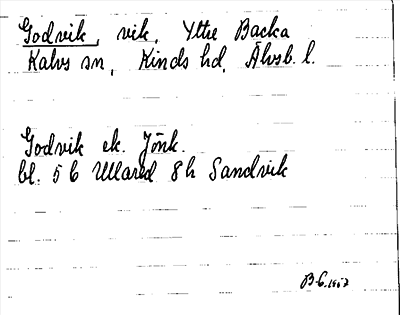 Godvik, vik, Yttre Backa
Kalvs sn, Kinds hd, Älvsb. l.
Godvik ek. Jönk.
bl. 56 Ullared 8h Sandvik
B.C. 1957